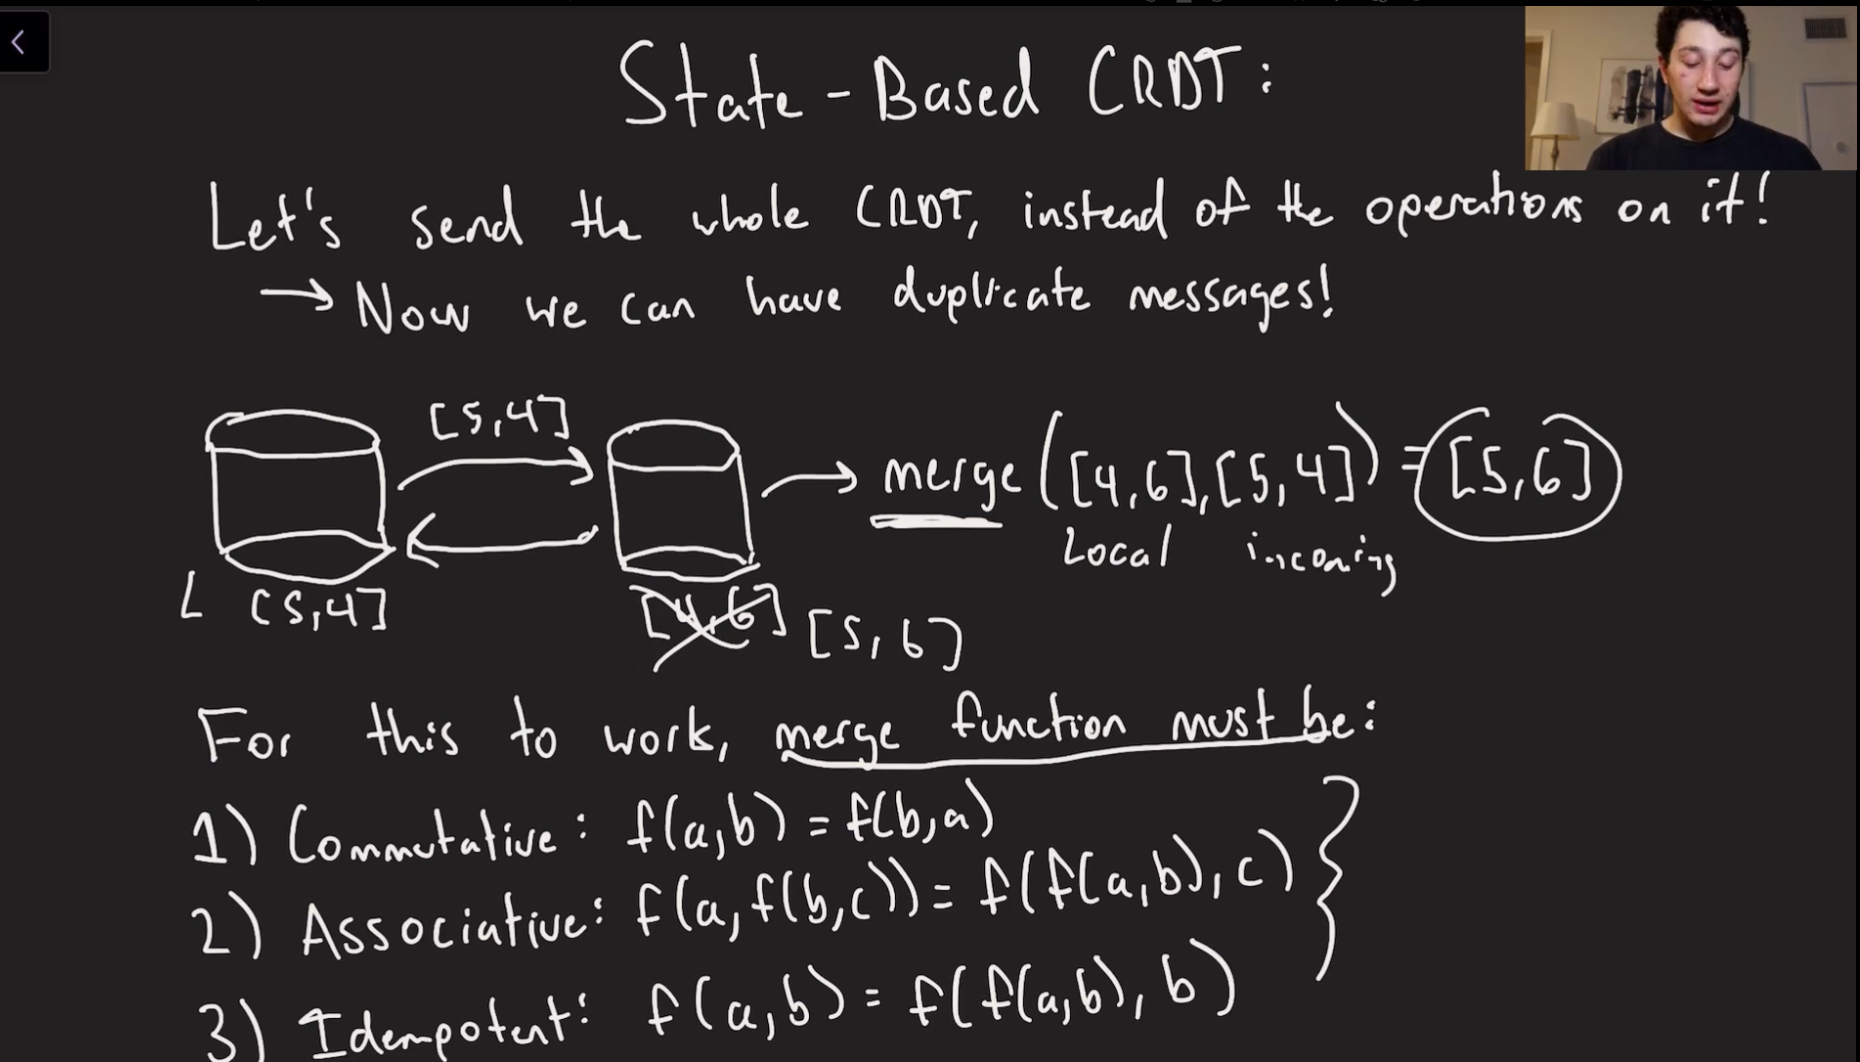 State-Based CRDT:
Let's send the whole CRDT, instead of the operations on it!
→ Now we can have duplicate messages!
[5,4]
→ merge([4,6],[5,4]) = [5,6]
Local incoming
L [5,4]
[4,6] [5,6]
For this to work, merge function must be:
1) Commutative: f(a,b) = f(b,a)
2) Associative: f(a,f(b,c)) = f(f(a,b),c)
3) Idempotent: f(a,b) = f(f(a,b),b)